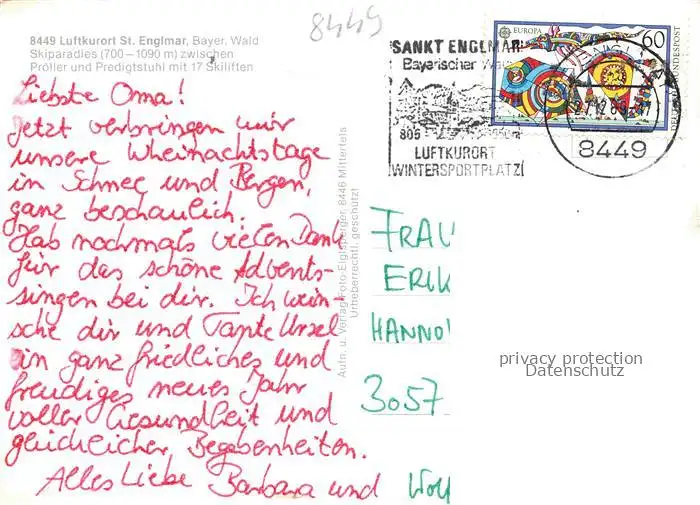 8449
8449 Luftkurort St. Englmar, Bayer. Wald
Skiparadies (700 - 1090 m) zwischen
Pröller und Predigtstuhl mit 17 Skiliften
Liebste Oma!
Jetzt verbringen wir
unsere Wheinachtstage
in Schnee und Bergen,
ganz beschaulich.
Hab nochmals vielen Dank
für das schöne Advents-
singen bei dir. Ich wün-
sche dir und Tante Ursel
ein ganz friedliches und
freudiges neues Jahr
voller Gesundheit und
glücklicher Begebenheiten.
Alles Liebe Barbara und Wolf
Aufn. u. Verlag Foto-Eiglsperger, 8446 Mitterfels
Urheberrechtl. geschützt!
SANKT ENGLMAR
Bayerischer Wald
LUFTKURORT
WINTERSPORTPLATZ
EUROPA
60
8449
FRAU
ERIK
HANNO
3057
privacy protection
Datenschutz